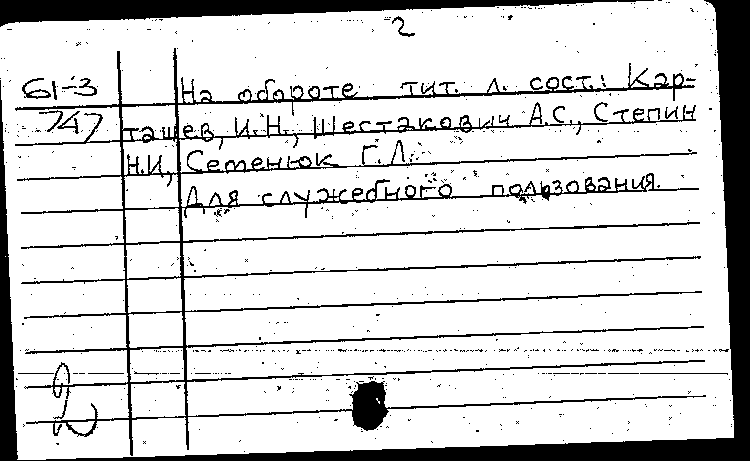 2
61-3 На обороте тит. л. сост.: Кар-
747 ташев, И.Н., Шестакович А.С., Степин
Н.И, Семенюк Г.Л.
Для служебного пользования.
2